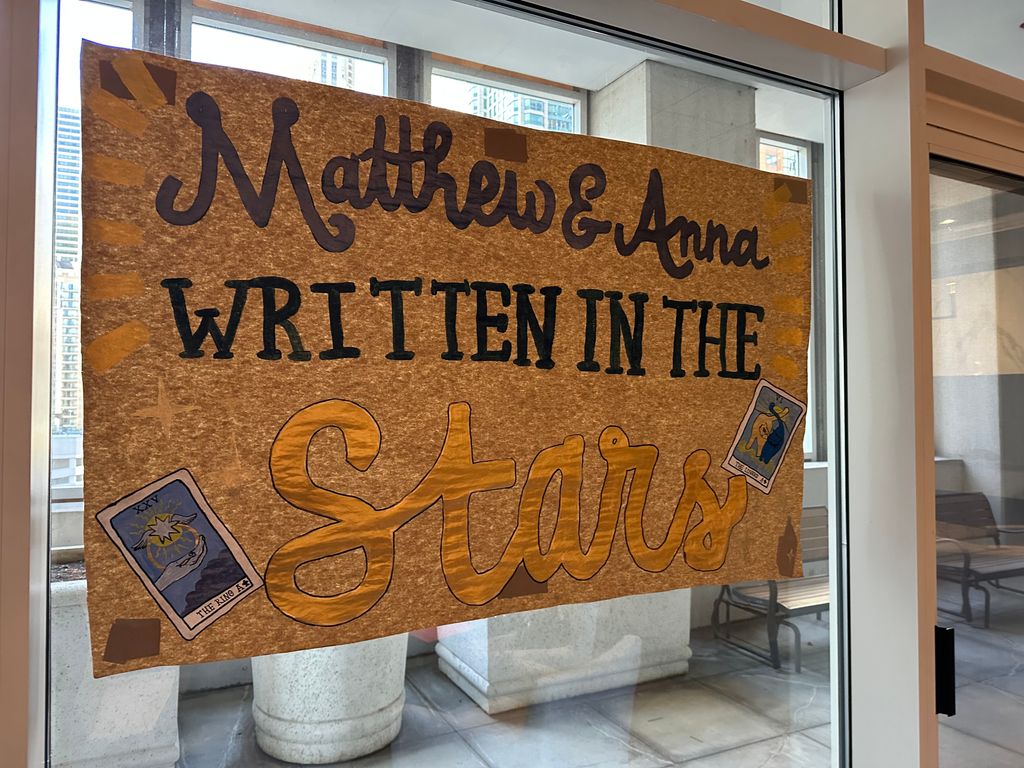 Matthew & Anna
WRITTEN IN THE
Stars
XXV
THE RING A
VI
THE LOVERS